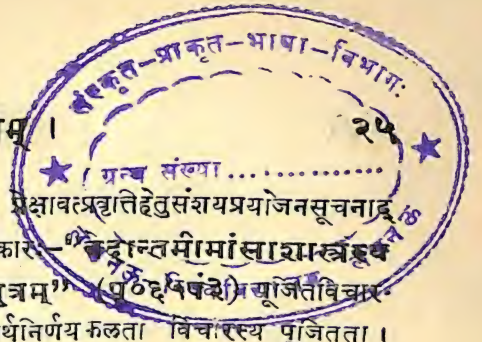 संस्कृत-प्राकृत-भाषा-विभागः
म् । २५
ग्रन्थ संख्या ..............
प्रेक्षावत्प्रवृत्तिहेतुसंशयप्रयोजनसूचनाद्
कारः-"वेदान्तमीमांसाशास्त्रस्य
त्रम्" (पृ० पं३) पूजितविचार-
र्थनिर्णयफलता विचारस्य पूजितता ।